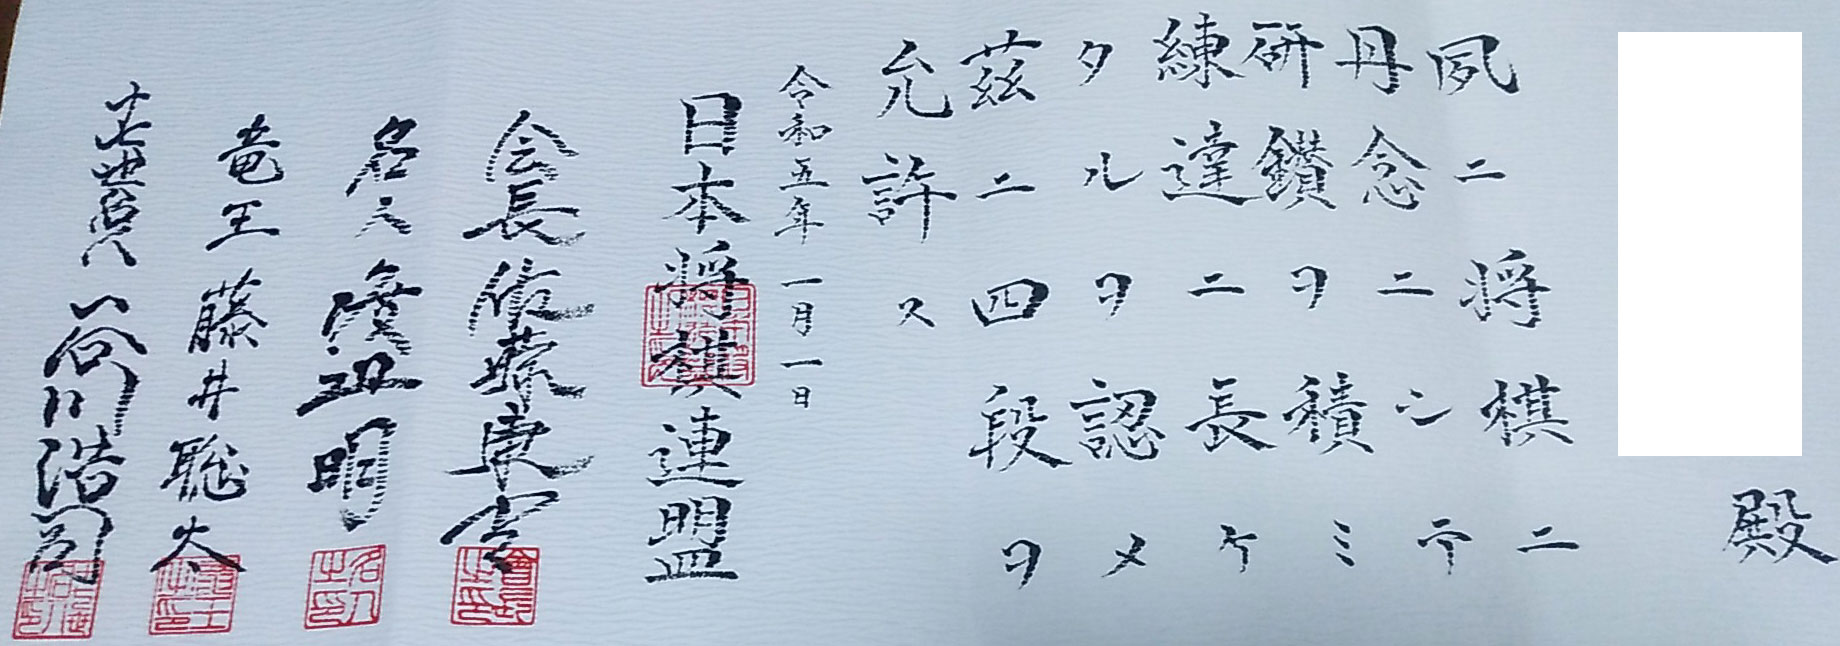 殿
夙ニ将棋ニ
丹念ニシテ
研鑽ヲ積ミ
練達ニ長ケ
タルヲ認メ
茲ニ四段ヲ
允許ス
令和五年一月一日
日本将棋連盟
会長 佐藤康光
名人 渡辺明
竜王 藤井聡太
十七世名人 谷川浩司